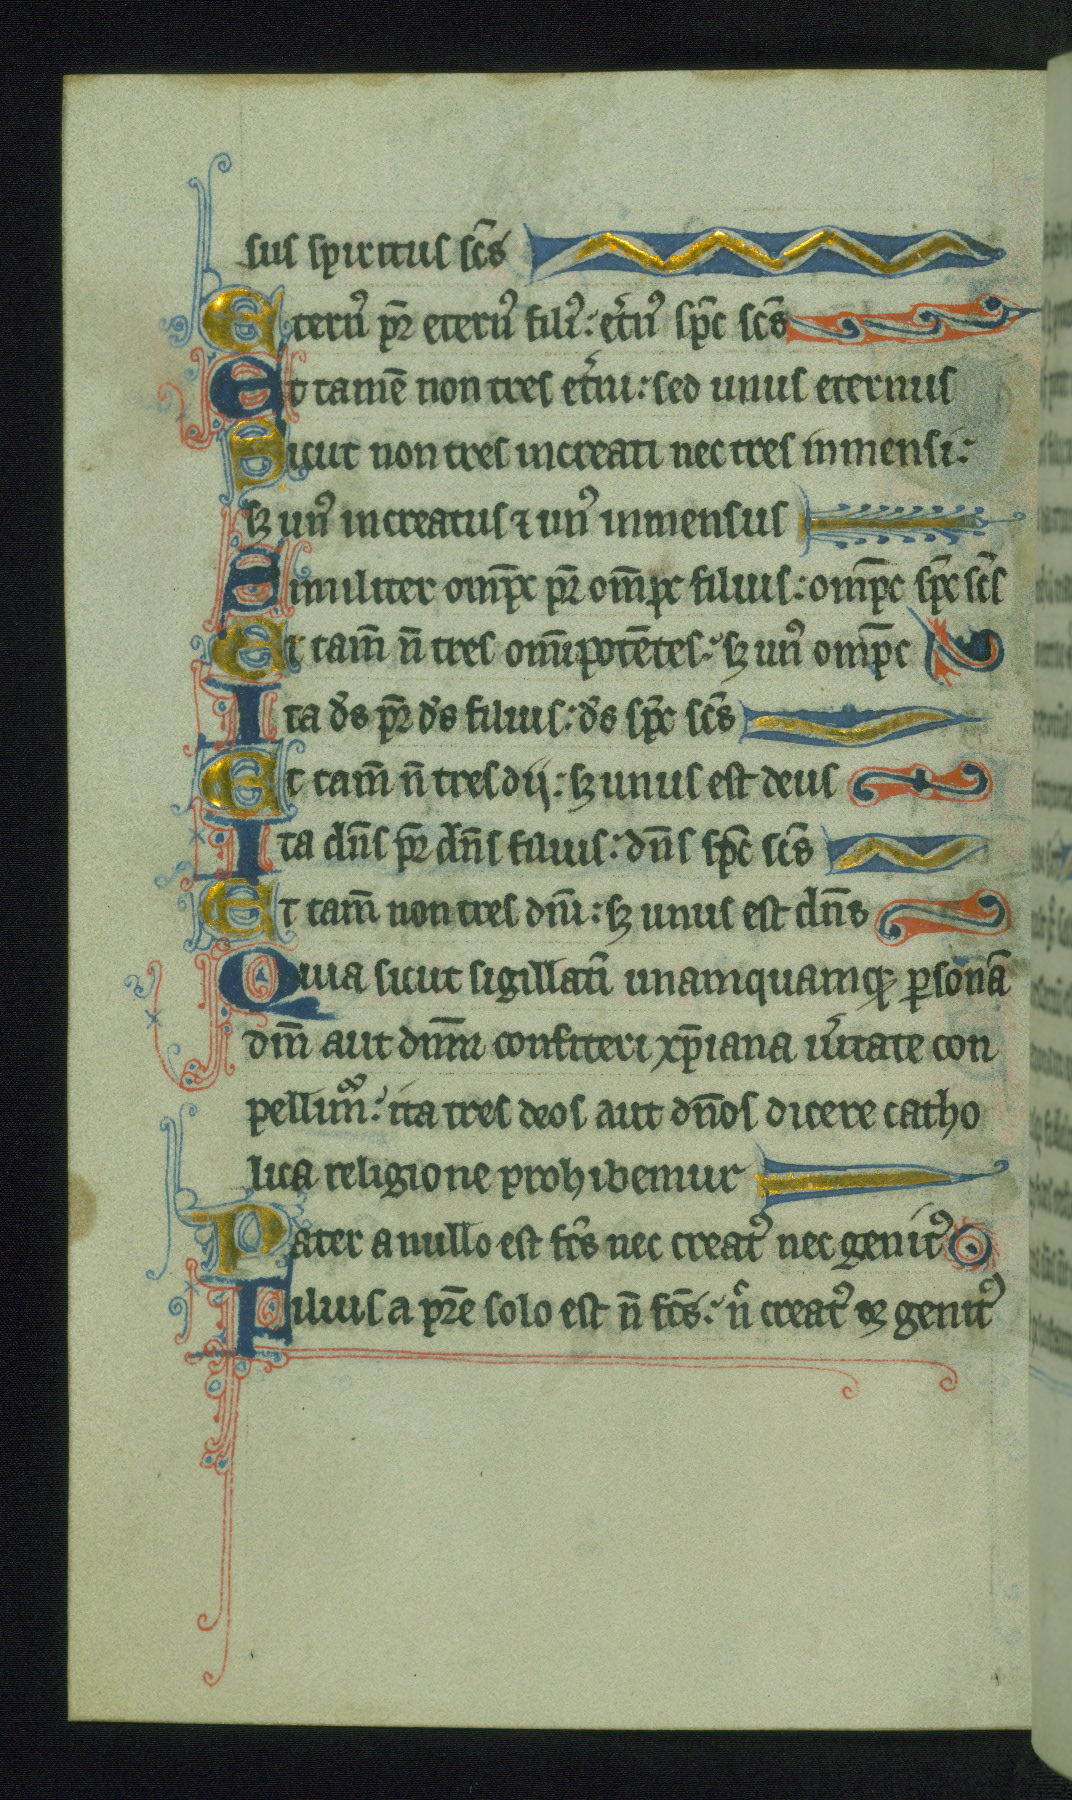 sus spiritus sc̄s
Etern᷒ pr̄ etern᷒ fili᷒: et̾n᷒ sp̄c sc̄s
Et tamē non tres et̾ni: sed unus eternus
Sicut non tres increati nec tres inmensi:
sꝫ un᷒ increatus ⁊ un᷒ inmensus
Similiter om̄pc̄ pr̄ om̄pc̄ filius: om̄pc̄ sp̄c sc̄s
Et tam̄ n̄ tres om̄ipotētes: sꝫ un᷒ om̄pc̄
Ita d̄s pr̄ d̄s filius: d̄s sp̄c sc̄s
Et tam̄ n̄ tres dij: sꝫ unus est deus
Ita dn̄s pr̄ dn̄s filius: dn̄s sp̄c sc̄s
Et tam̄ non tres dn̄i: sꝫ unus est dn̄s
Quia sicut sigillati̅ unamquamqꝫ ꝑsonā
dm̄ aut dn̄m confiteri xp̄iana u̾itate con
pellim᷒: ita tres deos aut dn̄os dicere catho
lica religione prohibemur
Pater a nullo est fc̄s nec creat᷒ nec genit᷒
Filius a pr̄e solo est n̄ fc̄s: n̄ creat᷒ sꝫ genit᷒